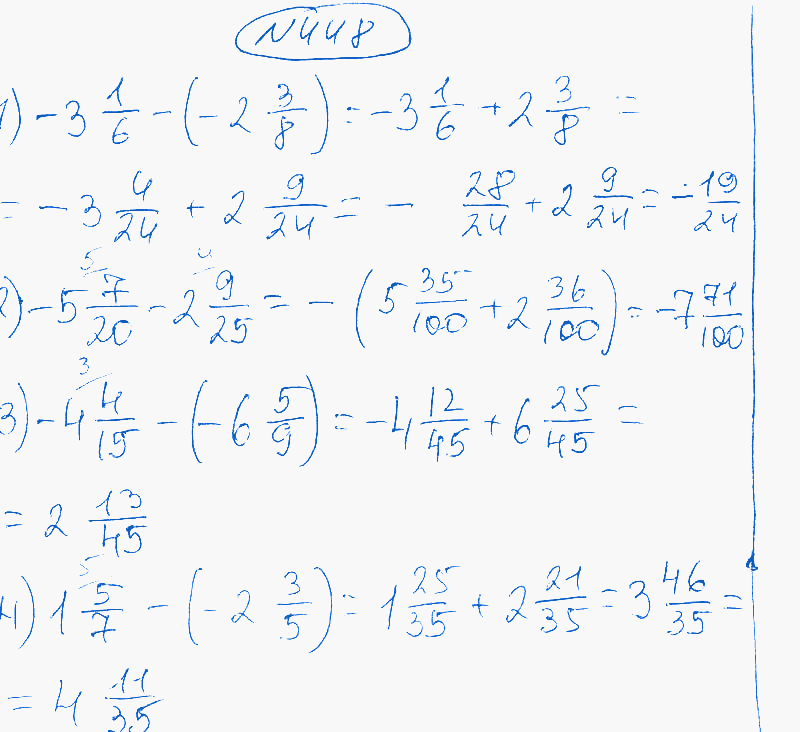 N448
1) -3 1/6 - (-2 3/8) = -3 1/6 + 2 3/8 =
= -3 4/24 + 2 9/24 = - 28/24 + 2 9/24 = -19/24
2) -5 7/20 - 2 9/25 = - (5 35/100 + 2 36/100) = -7 71/100
3) -4 4/15 - (-6 5/9) = -4 12/45 + 6 25/45 =
= 2 13/45
4) 1 5/7 - (-2 3/5) = 1 25/35 + 2 21/35 = 3 46/35 =
= 4 11/35